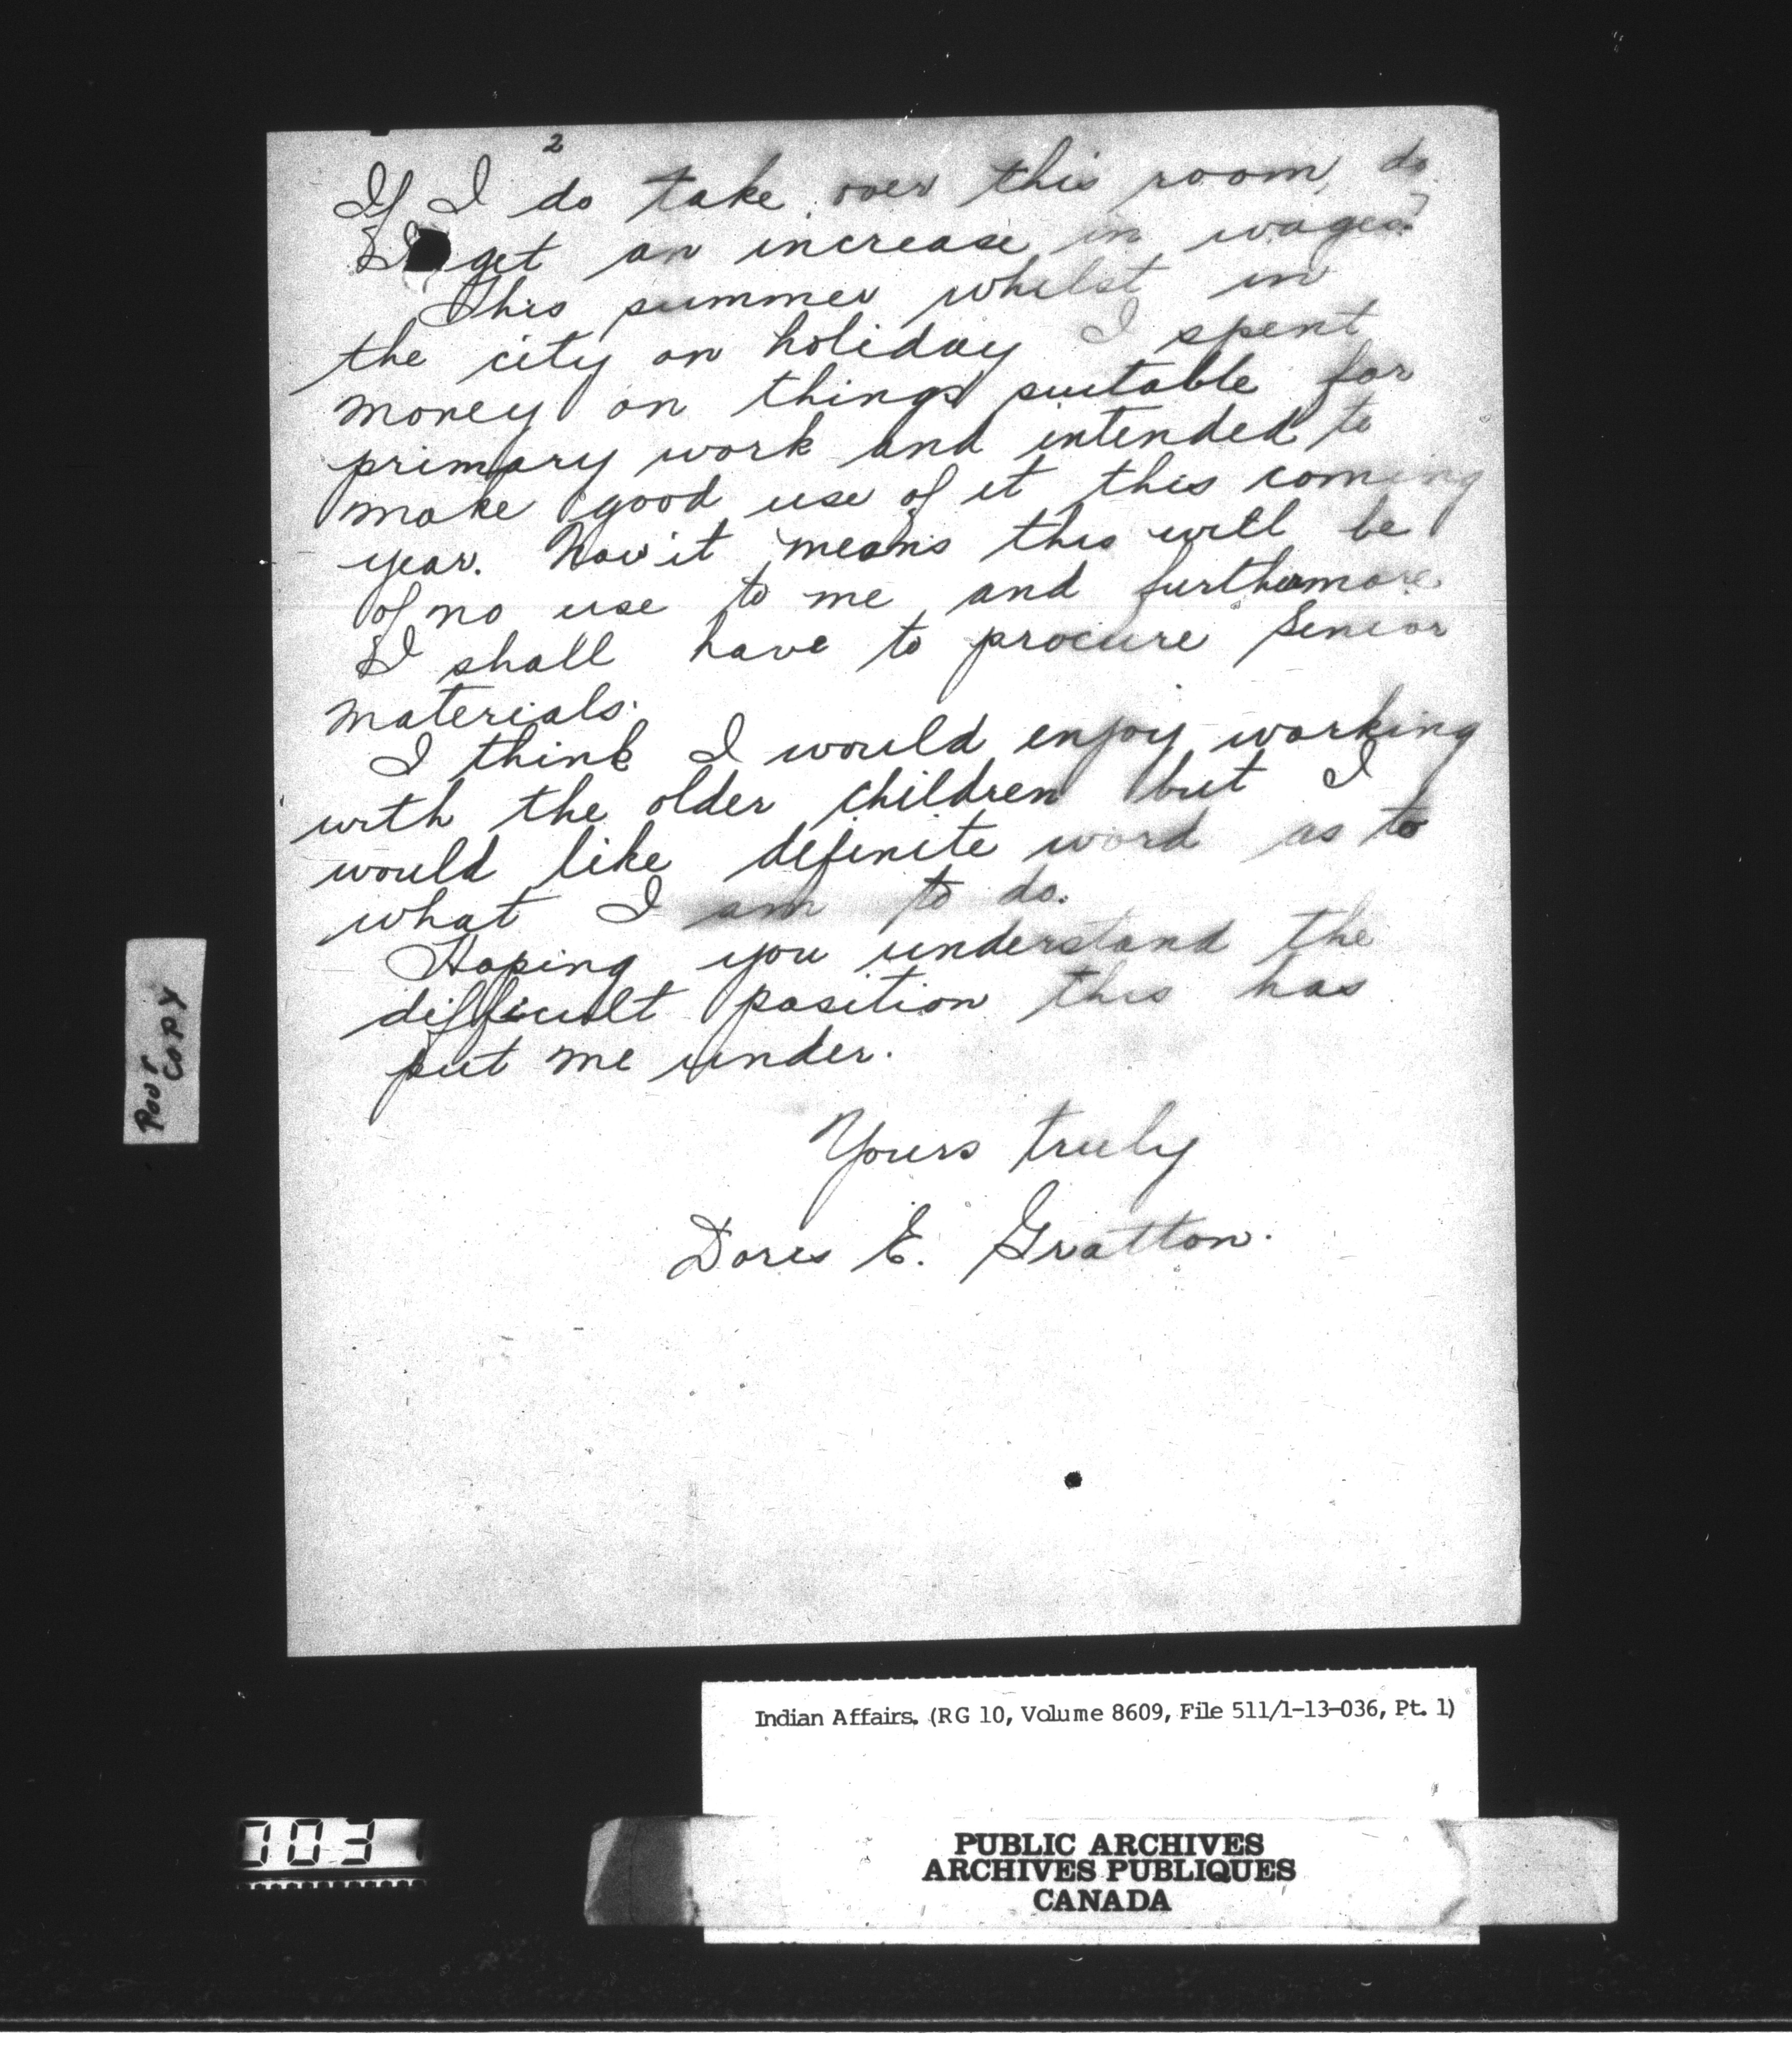 2
If I do take over this room, do
I get an increase in wages?
This summer whilst in
the city on holiday I spent
money on things suitable for
primary work and intended to
make good use of it this coming
year. Now it means this will be
of no use to me, and furthermore
I shall have to procure Senior
materials.
I think I would enjoy working
with the older children but I
would like definite word as to
what I am to do.
Hoping you understand the
difficult position this has
put me under.
Yours truly
Doris E. Gratton.
POOR
COPY
Indian Affairs. (RG 10, Volume 8609, File 511/1-13-036, Pt. 1)
003
PUBLIC ARCHIVES
ARCHIVES PUBLIQUES
CANADA